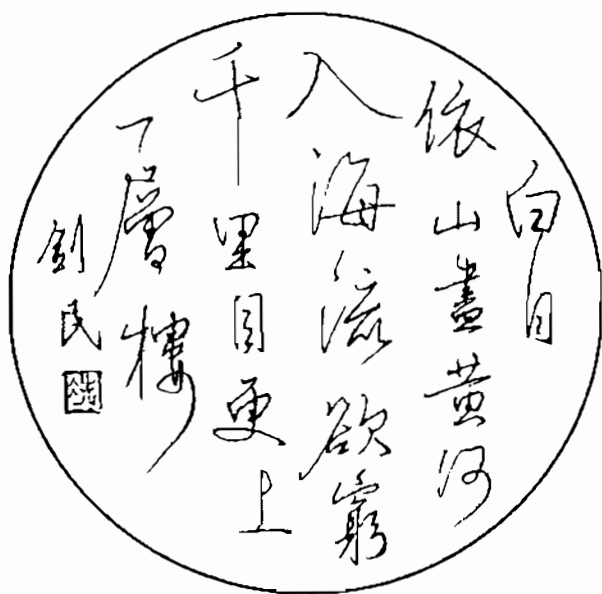 白日
依山盡黃河
入海流欲窮
千里目更上
一層樓
劍民